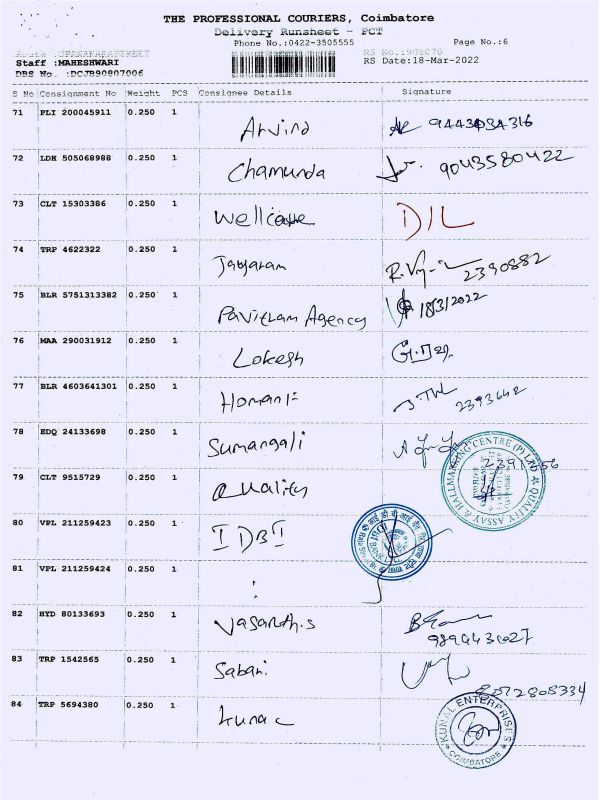 THE PROFESSIONAL COURIERS, Coimbatore
Delivery Runsheet - PCT
Phone No.:0422-3505555 Page No.:6
Staff :MAHESHWARI RS No.:908076
DRS No. :DCJB90807006 RS Date:18-Mar-2022
S No Consignment No Weight PCS Consignee Details Signature
71 PLI 200045911 0.250 1 Arvind
72 LDH 505068988 0.250 1 Chamunda 9043580422
73 CLT 15303386 0.250 1 Wellcare DIL
74 TRP 4622322 0.250 1 2390882
75 BLR 5751313382 0.250 1 Pavitram Agency 18/3/2022
76 MAA 290031912 0.250 1 Lokesh
77 BLR 4603641301 0.250 1 2393642
78 EDQ 24133698 0.250 1 Sumangali
79 CLT 9515729 0.250 1 Quality
QUALITY ASSAY & HALLMARKING CENTRE (P) LTD
80 VPL 211259423 0.250 1 IDBI
81 VPL 211259424 0.250 1 :
82 HYD 80133693 0.250 1 Vasanth.s
83 TRP 1542565 0.250 1 Sabari
84 TRP 5694380 0.250 1
KUNAL ENTERPRISES
COIMBATORE